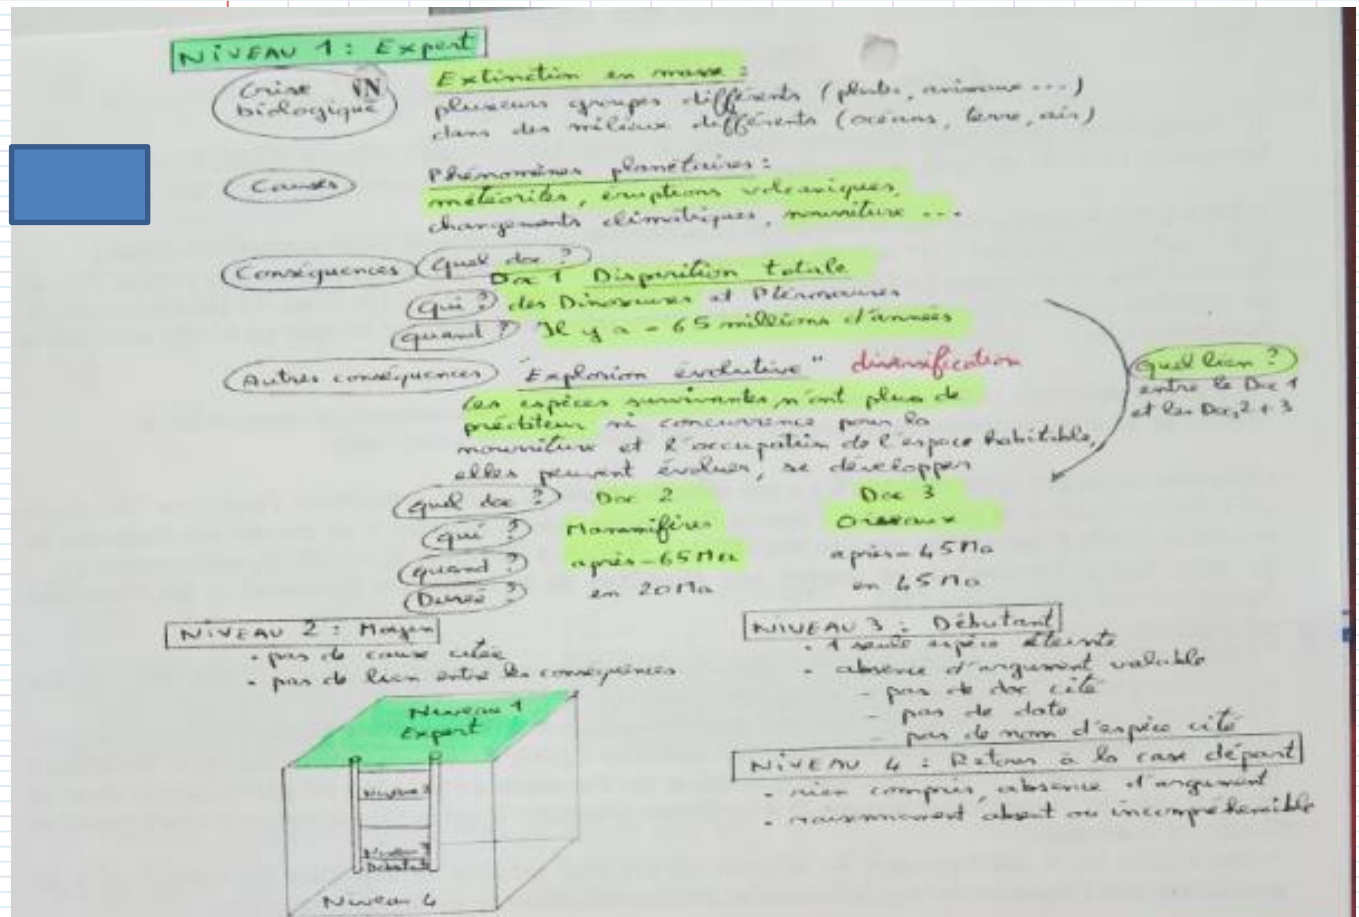 NIVEAU 1 : Expert
Crise
biologique
Extinction en masse :
plusieurs groupes différents (plantes, animaux ...)
dans des milieux différents (océans, terre, air)
Causes
Phénomènes planétaires :
météorites, éruptions volcaniques,
changements climatiques, nourriture ...
Conséquences
quel doc ?
Doc 1 Disparition totale
qui ? des Dinosaures et Ptérosaures
quand ? Il y a - 65 millions d'années
Autres conséquences "Explosion évolutive" diversification
Les espèces survivantes n'ont plus de
prédateur ni concurrence pour la
nourriture et l'occupation de l'espace habitable,
elles peuvent évoluer, se développer
quel lien ?
entre le Doc 1
et les Doc 2 + 3
quel doc ? Doc 2 Doc 3
qui ? Mammifères Oiseaux
quand ? après - 65 Ma après - 45 Ma
Durée ? en 20 Ma en 45 Ma
NIVEAU 2 : Moyen
- pas de cause citée
- pas de lien entre les conséquences
NIVEAU 3 : Débutant
- 1 seule espèce éteinte
- absence d'argument valable
- pas de doc cité
- pas de date
- pas de nom d'espèce cité
NIVEAU 4 : Retour à la case départ
- rien compris, absence d'argument
- raisonnement absent ou incompréhensible
Niveau 1
Expert
Niveau 2
Niveau 3
Débutant
Niveau 4